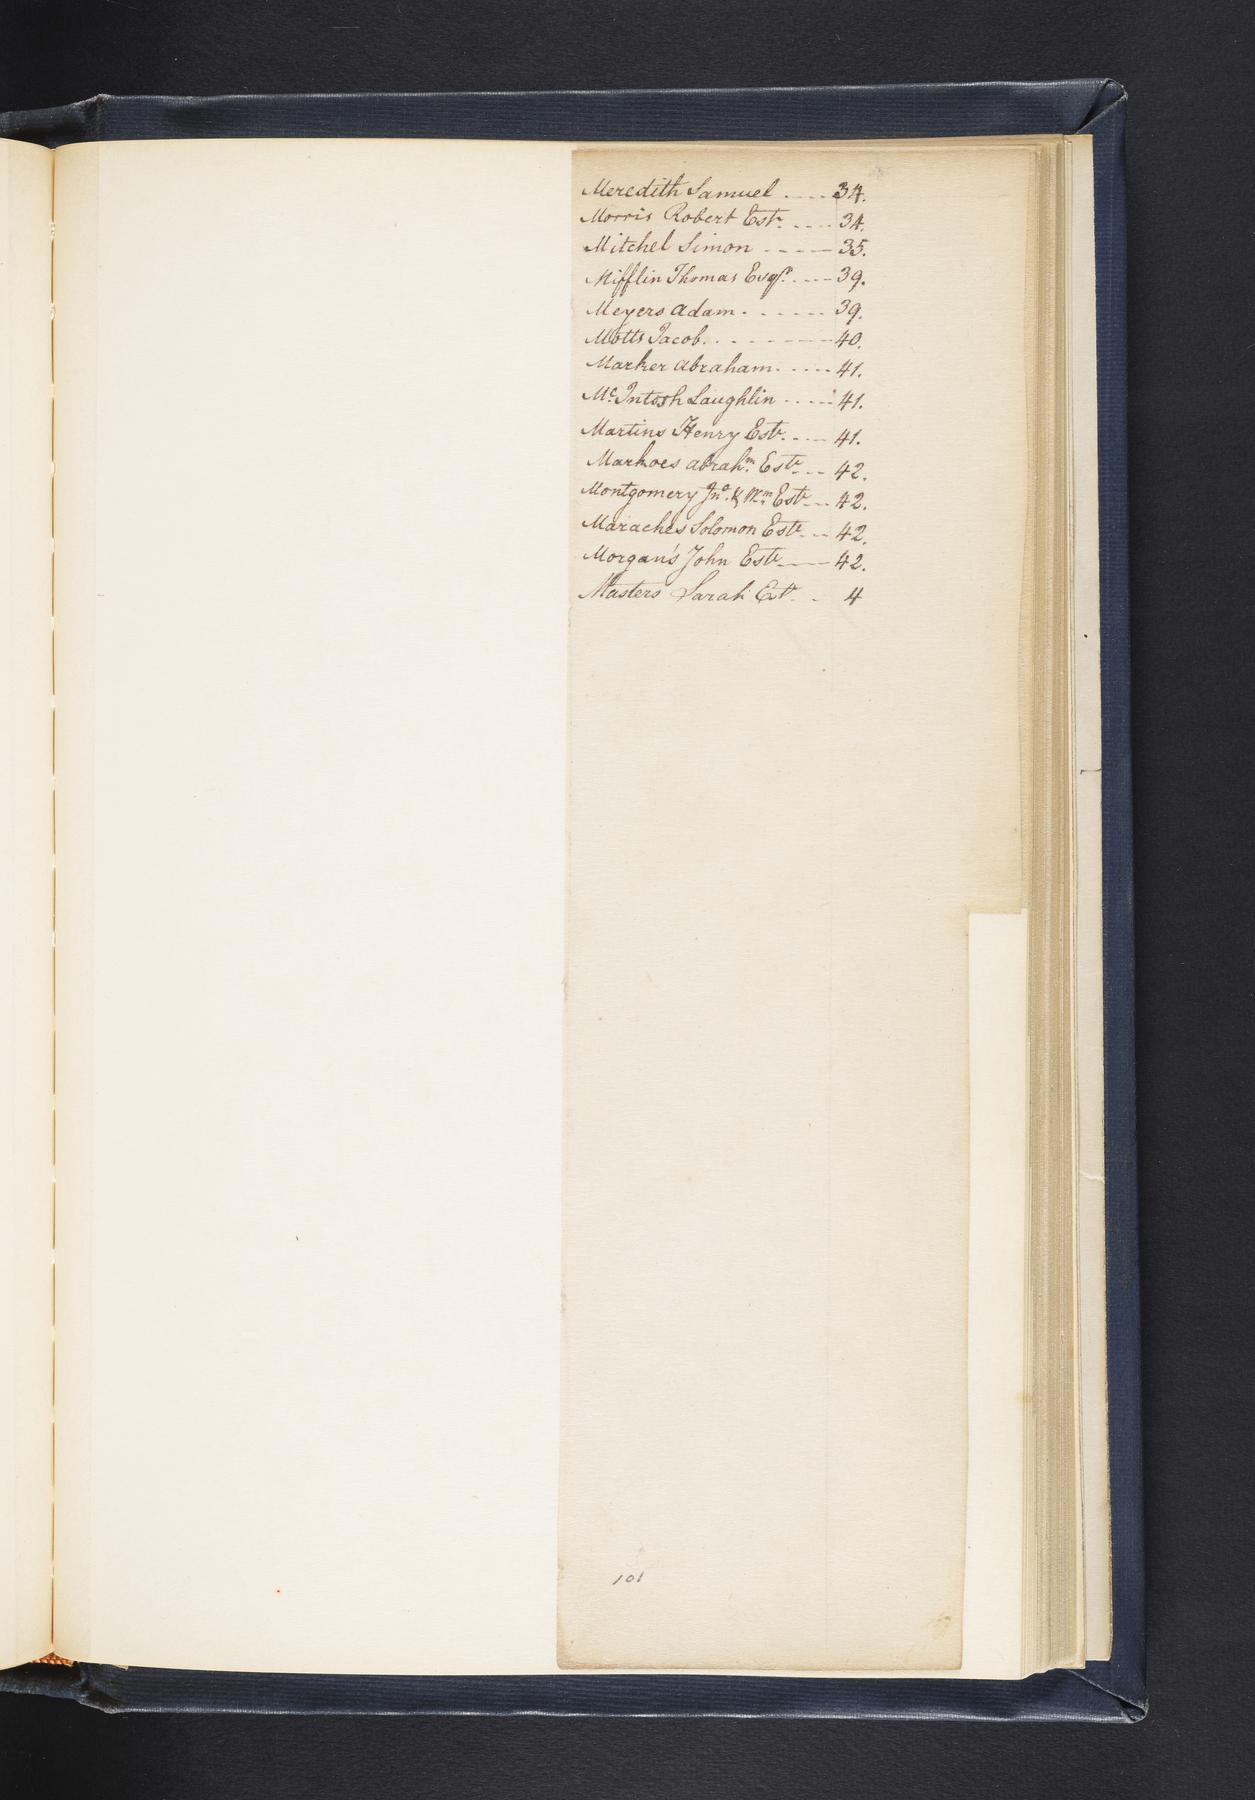 Meredith Samuel . . . . 34.
Morris Robert Este. . . . . 34.
Mitchel Simon - - - - - 35.
Mifflin Thomas Esqr. . . . - 39.
Meyers Adam . . . . . . . 39.
Motts Jacob . . . - - - - - - 40.
Marker Abraham . . . . . 41.
Mc. Intosh Laughlin . . . . . 41.
Martins Henry Este. . . . 41.
Markoes Abrahm. Este. . . 42.
Montgomery Jno. & Wm. Este . . 42.
Maraches Solomon Este . . . 42.
Morgan's John Este - - - 42.
Masters Sarah Este . . 4
101